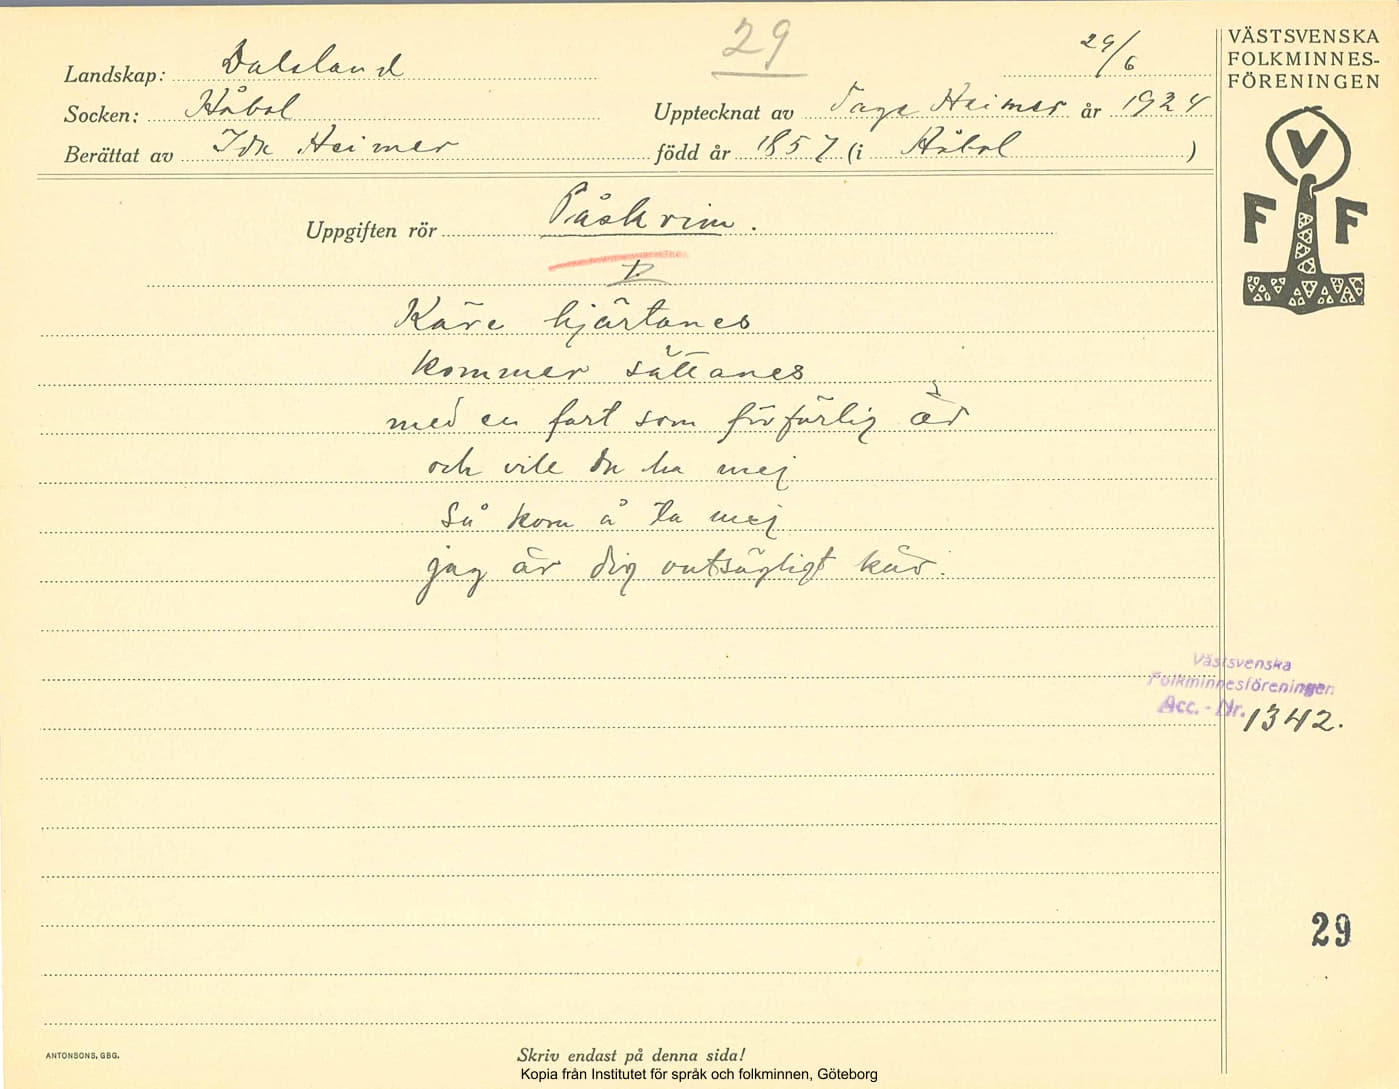 29
29/6
VÄSTSVENSKA
FOLKMINNES-
FÖRENINGEN
V
F F
Landskap: Dalsland
Socken: Håbol
Upptecknat av Tage Heimer år 1924
Berättat av Ida Heimer
född år 1857 (i Håbol )
Uppgiften rör Påskrim.
Käre hjärtanes
kommer sättanes
med en fart som förfärlig är
och vile du ha mej
Så kom å ta mej
jag är dig outsägligt kär.
Västsvenska
Folkminnesföreningen
Acc. - Nr. 1342.
29
ANTONSONS, GBG.
Skriv endast på denna sida!
Kopia från Institutet för språk och folkminnen, Göteborg